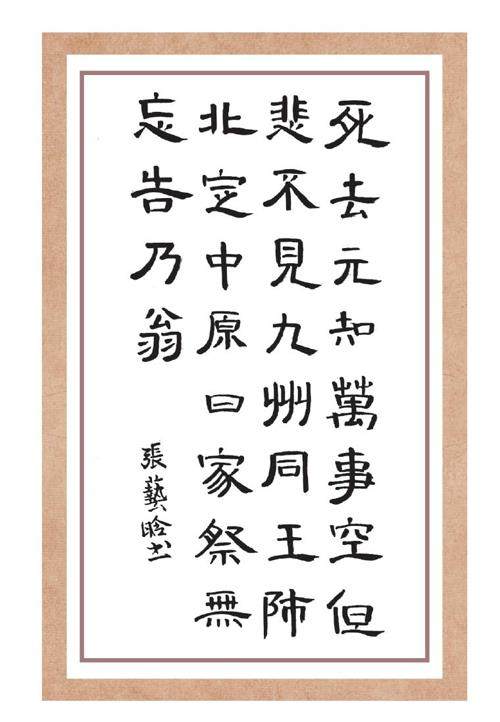 死去元知萬事空但
悲不見九州同王師
北定中原日家祭無
忘告乃翁
張藝晗书